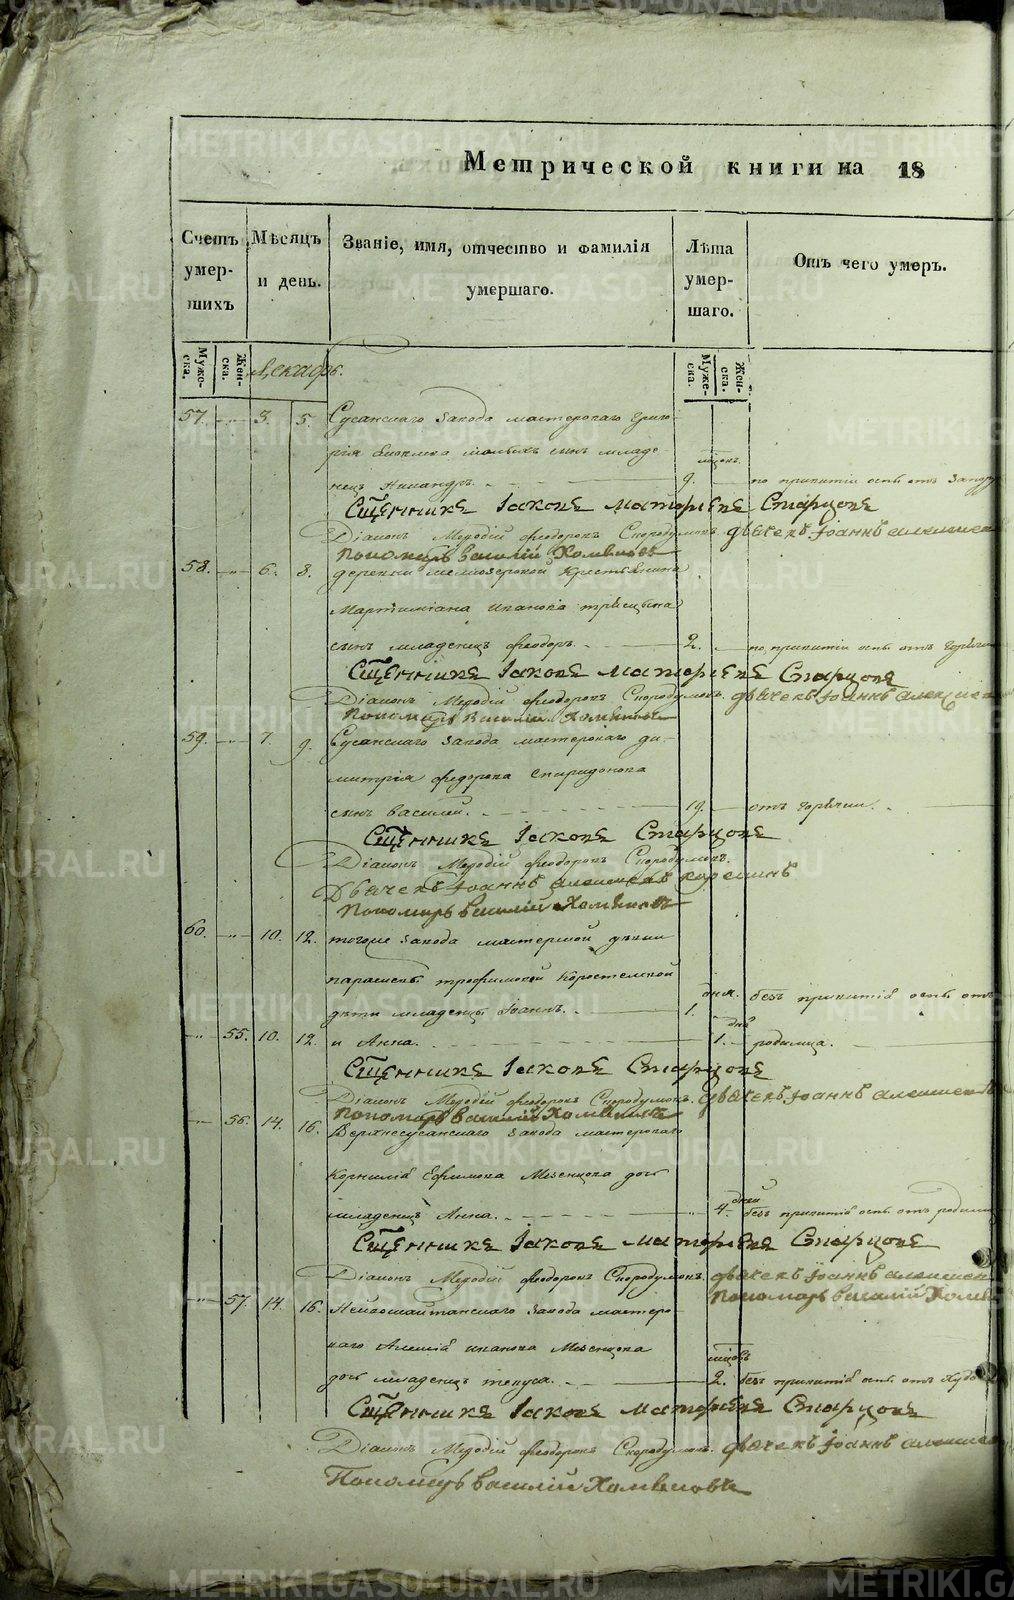 Метрической книги на 18
Счетъ умер- шихъ
Мѣсяцъ и день.
Званіе, имя, отчество и фамилія умершаго.
Лѣта умер- шаго.
Отъ чего умеръ.
Муже- ска.
Жен- ска.
Муже- ска.
Жен- ска.
Декабрь.
57. 3. 5. Сусанскаго завода мастероваго Григо-
рія сынъ младе-
нецъ Никандръ. мѣсяц. 9. по принятіи оспы отъ
Сщенникъ Іаковъ Матфѣевъ Старцовъ
Діаконъ Меѳодій Ѳеодоровъ Скородумовъ. Дьячекъ Іоаннъ Алексѣев
Пономарь Василій Хомяковъ
58. 6. 8. деревни Крестьянина
Мартиніана Иванова
сынъ младенецъ Ѳеодоръ. 2. по принятіи оспы отъ горячки
Сщенникъ Іаковъ Матфѣевъ Старцовъ
Діаконъ Меѳодій Ѳеодоровъ Скородумовъ. Дьячекъ Іоаннъ Алексѣев
Пономарь Василій Хомяковъ
59. 7. 9. Сусанскаго завода мастероваго Ди-
митрія Ѳедорова Спиридонова
сынъ Василій. 19. отъ горячки.
Сщенникъ Іаковъ Старцовъ
Діаконъ Меѳодій Ѳеодоровъ Скородумовъ.
Дьячекъ Іоаннъ Алексѣевъ
Пономарь Василій Хомяковъ
60. 10. 12. тогоже завода мастерской дѣвки
Трофимовой Коростелевой
дѣти младенцы Іоаннъ. дня. 1. безъ принятія оспы отъ
55. 10. 12. и Анна. дня 1. родимца.
Сщенникъ Іаковъ Старцовъ
Діаконъ Меѳодій Ѳеодоровъ Скородумовъ. Дьячекъ Іоаннъ Алексѣевъ
Пономарь Василій Хомяковъ
56. 14. 16. Верхнесусанскаго завода мастероваго
Корнилія Ефимова Мѣзенцова дочь
младенецъ Анна. дней 4. безъ принятія оспы отъ родимц
Сщенникъ Іаковъ Матфѣевъ Старцовъ
Діаконъ Меѳодій Ѳеодоровъ Скородумовъ. Дьячекъ Іоаннъ Алексѣев
Пономарь Василій Хомяк
57. 14. 16. Нейвошайтанскаго завода мастеро-
ваго Алексія Иванова Мѣзенцова
дочь младенецъ мѣсяцовъ 2. безъ принятія оспы отъ
Сщенникъ Іаковъ Матфѣевъ Старцовъ
Діаконъ Меѳодій Ѳеодоровъ Скородумовъ. Дьячекъ Іоаннъ Алексѣев
Пономарь Василій Хомяковъ
METRIKI.GASO-URAL.RU